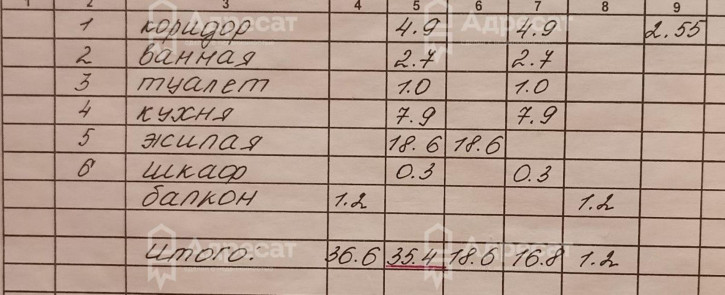 1 2 3 4 5 6 7 8 9
1 коридор 4.9 4.9 2.55
2 ванная 2.7 2.7
3 туалет 1.0 1.0
4 кухня 7.9 7.9
5 жилая 18.6 18.6
6 шкаф 0.3 0.3
балкон 1.2 1.2
Итого: 36.6 35.4 18.6 16.8 1.2
Адресат
Адресат
Адресат
Адресат